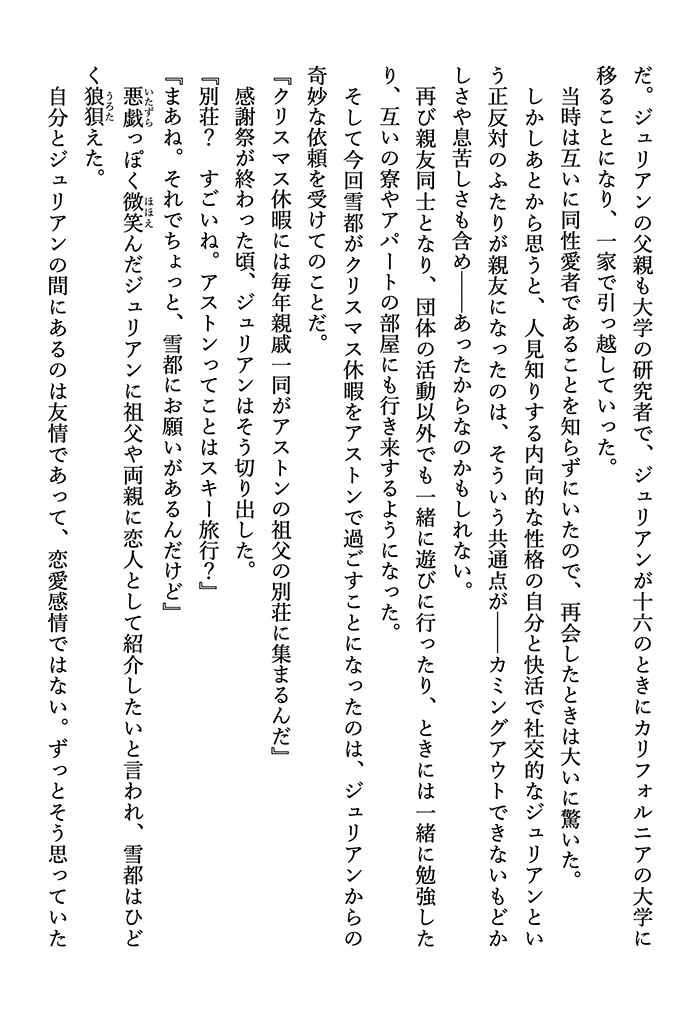 だ。ジュリアンの父親も大学の研究者で、ジュリアンが十六のときにカリフォルニアの大学に
移ることになり、一家で引っ越していった。
当時は互いに同性愛者であることを知らずにいたので、再会したときは大いに驚いた。
しかしあとから思うと、人見知りする内向的な性格の自分と快活で社交的なジュリアンとい
う正反対のふたりが親友になったのは、そういう共通点が――カミングアウトできないもどか
しさや息苦しさも含め――あったからなのかもしれない。
再び親友同士となり、団体の活動以外でも一緒に遊びに行ったり、ときには一緒に勉強した
り、互いの寮やアパートの部屋にも行き来するようになった。
そして今回雪都がクリスマス休暇をアストンで過ごすことになったのは、ジュリアンからの
奇妙な依頼を受けてのことだ。
『クリスマス休暇には毎年親戚一同がアストンの祖父の別荘に集まるんだ』
感謝祭が終わった頃、ジュリアンはそう切り出した。
『別荘？　すごいね。アストンってことはスキー旅行？』
『まあね。それでちょっと、雪都にお願いがあるんだけど』
悪戯っぽく微笑んだジュリアンに祖父や両親に恋人として紹介したいと言われ、雪都はひど
く狼狽えた。
自分とジュリアンの間にあるのは友情であって、恋愛感情ではない。ずっとそう思っていた